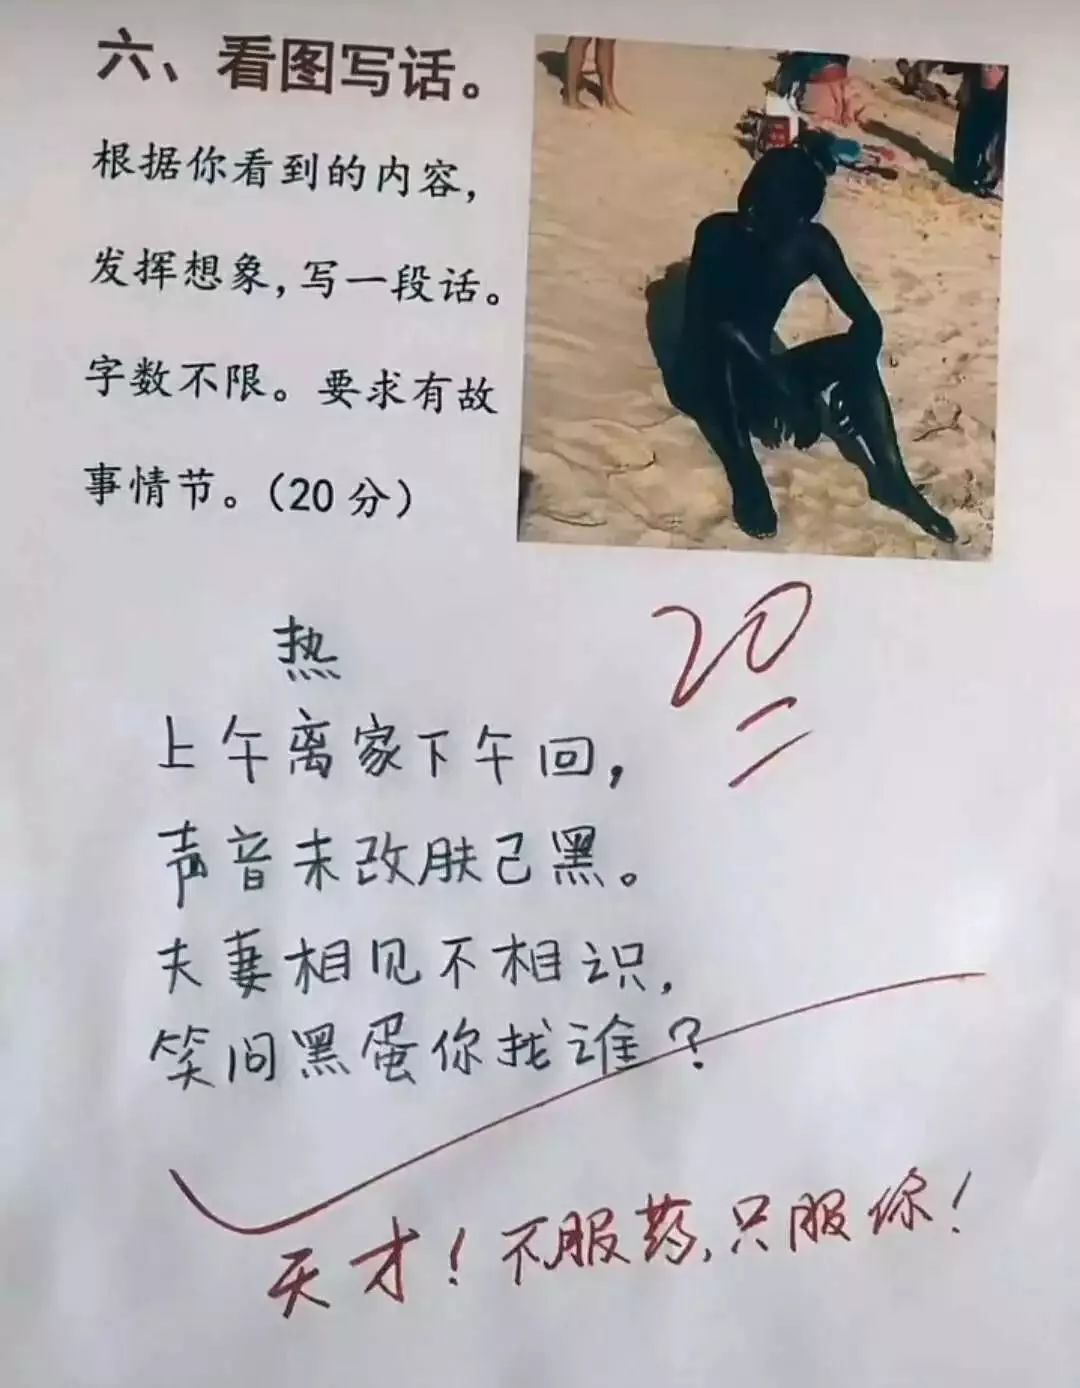 六、看图写话。
根据你看到的内容，
发挥想象，写一段话。
字数不限。要求有故
事情节。（20分）
20
热
上午离家下午回，
声音未改肤己黑。
夫妻相见不相识，
笑问黑蛋你找谁？
天才！不服药，只服你！